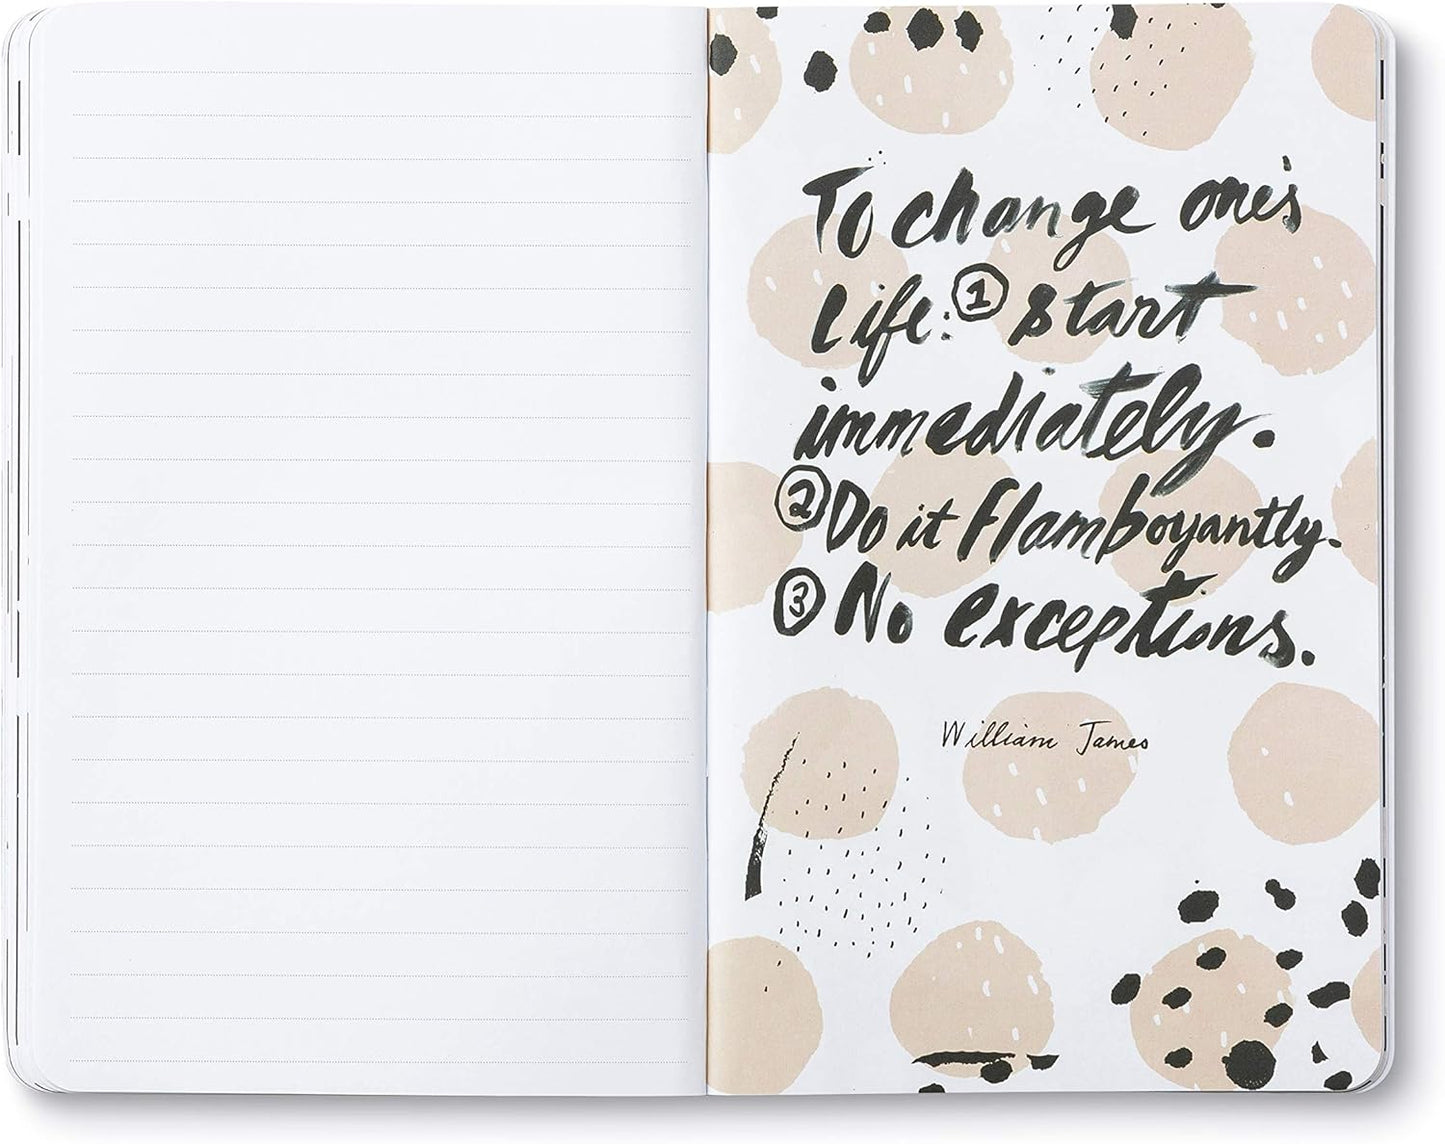 To change one's
life: ① Start
immediately.
② Do it Flamboyantly.
③ No exceptions.
William James